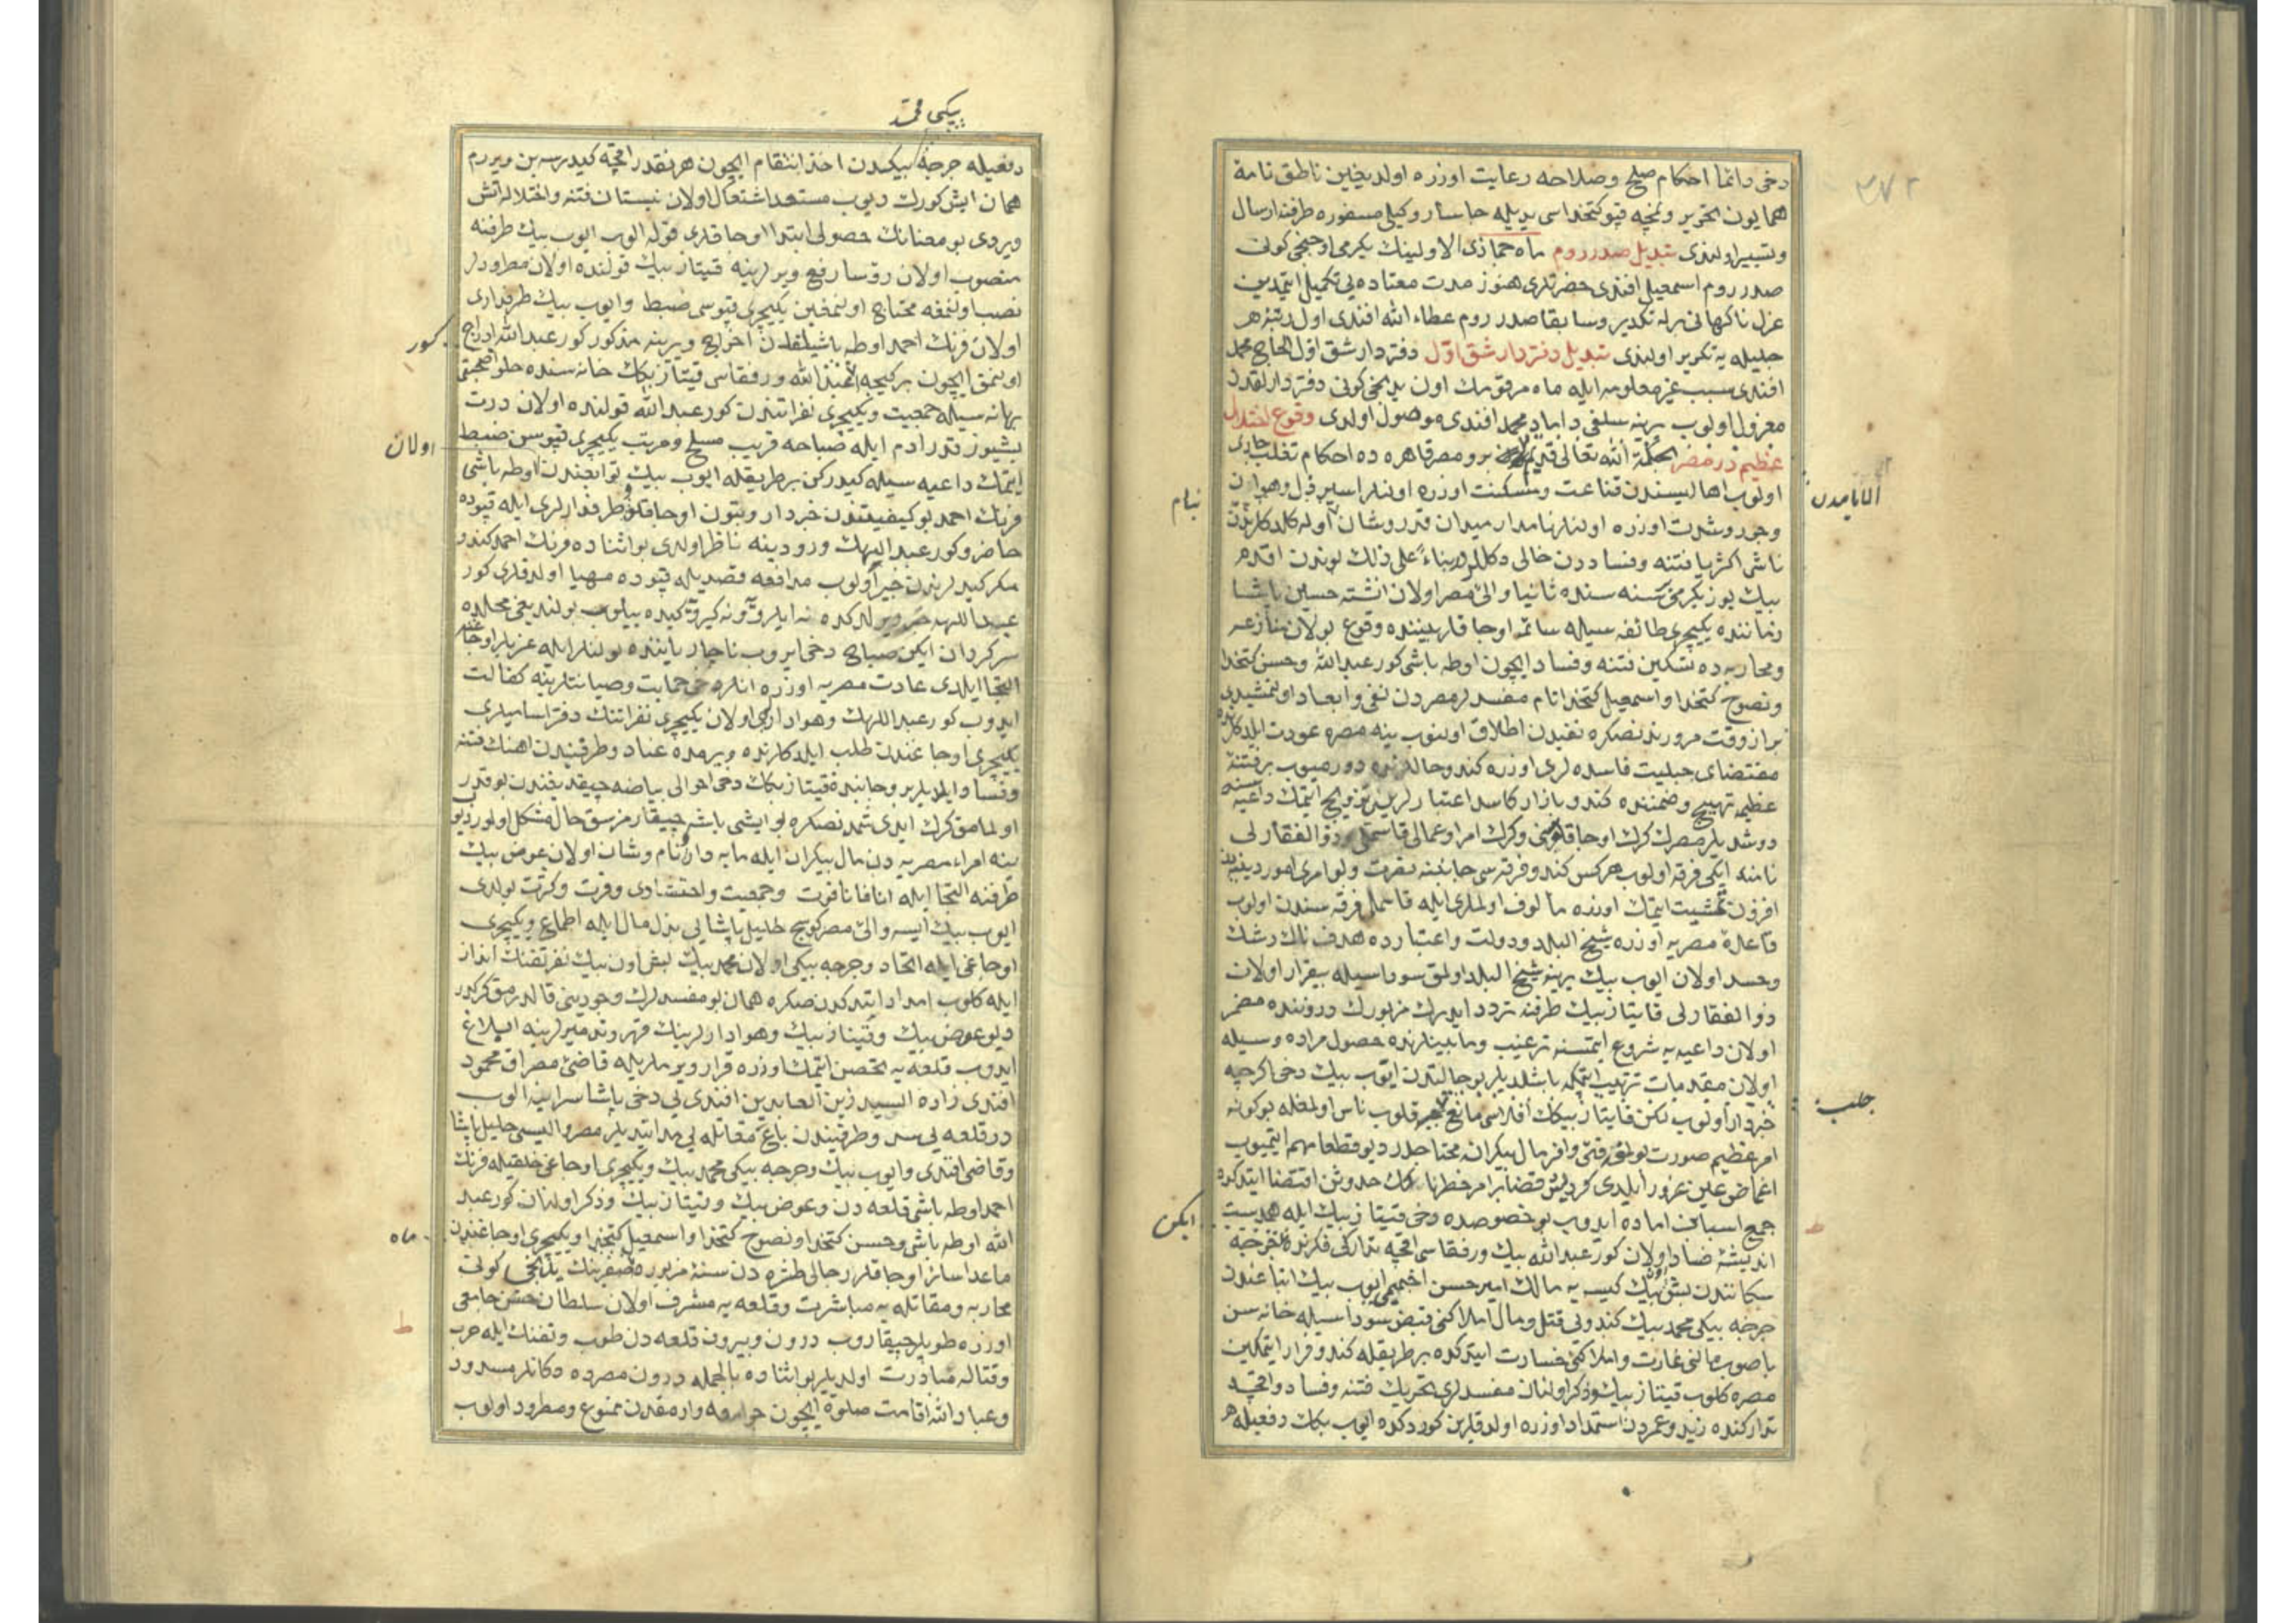 ٣٧٢
دخی دائما احکام صلح وصلاحه رعایت اوزره اولدیغین ناطق نامهٔ
همایون تحریر ونمچه قپوکتخداسی یدیله جاسار وکیلی مسفوره طرفنه ارسال
وتسییر اولندی تبدیل صدر روم ماه جماذی الاولینك یکرمی اوچنجی کونی
صدر روم اسمعیل افندی حضرتلری هنوز مدت معتاده یی تکمیل ایتمدین
عزل ناکهانی برله تکدیر وسابقا صدر روم عطاء الله افندی اول رتبهٔ
جلیله یه تکریر اولندی تبدیل دفتردار شق اوّل دفتردار شق اوّل الحاج محمد
افندی سبب غیر معلومه ایله ماه مرقومك اون یدنجی کونی دفتردارلقدن
معزول اولوب یرینه سلفی داماد محمد افندی موصول اولدی وقوع اختلال
عظیم در مصر لحکمة الله تعالی برو مصر قاهره ده احکام تغلب جاری
اولوب اهالیسندن قناعت ومسکنت اوزره اولنلر اسیر ذل وهوان
وجور وشدت اوزره اولنلر نامدار میدان قدر وشان اوله کلدکلرندن
ناشی اکثریا فتنه وفساددن خالی دکللر در بناءً علی ذلك بوندن اقدم
بیك یوز یکرمی سنه سنده ثانیا والیٔ مصر اولان انشته حسین پاشا
زماننده یکیچری طائفه سیله سائر اوجاقلر بیننده وقوع بولان منازعه
ومحاربه ده تسکین فتنه وفساد ایچون اوطه باشی کور عبد الله وحسن کتخدا
ونصوح کتخدا واسمعیل کتخدا نام مفسدلر مصردن نفی وابعاد اولنمشیدی
بر از وقت مرورندنصکره نفیدن اطلاق اولنوب ینه مصره عودت ایلدکلرنده
مقتضای جبلیت فاسده لری اوزره کندو حاللرنده دورمیوب بر فتنهٔ
عظیم تهییج وضمننده کندو بازار کاسد اعتبارلرین ترویج ایتمك داعیه سنه
دوشدیلر مصرك کرك اوجاقلوسی وکرك امرا وعمالی قاسملی وذو الفقارلی
نامنده ایکی فرقه اولوب هر کس کندو فرقه سی جانبنه نصرت ولوامری امور دینیه دن
افزون تمشیت ایتمك اوزره مألوف اولملری ایله قاسملی فرقه سندن اولوب
قاعدهٔ مصریه اوزره شیخ البلد ودولت واعتبارده هدف ناوك رشك
وحسد اولان ایوب بیك یرینه شیخ البلد اولمق سوداسیله بیقرار اولان
ذو الفقارلی قایتاز بیك طرفنه تردد ایدرك مزبورك دروننده مضمر
اولان داعیه یه شروع ایتمسنه ترغیب ومابینلرنده حصول مراده وسیله
اولان مقدمات ترتیب ایتمکه باشلدیلر بو حالتدن ایوب بیك دخی اکرچه
خبردار اولوب لکن قایتاز بیکك افندیسی مانع جلب قلوب ناس اولمغله بو کونه
امر عظیم صورت بولمق فتی وافر مال بیکرانه محتاجدر دیو قطعا مهم ایتمیوب
اغماض عین غرور ایلدی کردش قضا بر امر خطرناکك حدوثن اقتضا ایتدکده
جمیع اسبابن اماده ایدوب بو خصوصده دخی قیتاز بیك ایله همدست
اندیشهٔ فساد اولان کور عبد الله بیك ورفقاسی اقچه تدارکی فکرنده ایکن جرجه
سکانندن بش اون بیك کیسه یه مالك امیر حسن اخمیمی ایوب بیك اتباعندن
جرجه بیکی محمد بیك کندویی قتل ومال املاکنی قبض سوداسیله خانه سن
باصوب مالنی غارت واملاکنی خسارت ایتدکده بر طریقله کندو فرار ایتمکین
مصره کلوب قیتاز بیك وذکر اولنان مفسدلری تحریك فتنه وفساد واقچه
تدارکنده زید وعمردن استمداد اوزره اولدقلرین کوردکده ایوب بکك دفعیله
الانامدن
بنام
جلب
ایکن
بیکی محمد
دفعیله جرجه بیکیدن اخذ انتقام ایچون هر نقدر اقچه کیدرسه بن ویررم
همان ایش کورك دیوب مستعد اشتعال اولان نیستان فتنه واختلاله اتش
ویردی بو معنانك حصولی ابتدا اوجاقلری قوله الوب ایوب بیك طرفنه
منصوب اولان رؤسا رفع ویرلرینه قیتاز بیك قولنده اولان مطرودلر
نصب اولنمغه محتاج اولنمغین یکیچری قپوسی ضبط وایوب بیك طرفداری
اولان فرنك احمد اوطه باشیلقدن اخراج ویرینه مذکور کور عبد الله ادراج
اولنمق ایچون بر کیجه عبد الله ورفقاسی قیتاز بکك خانه سنده حلوا صحبتی
بهانه سیله جمعیت ویکیچری نفراتندن کور عبد الله قولنده اولان درت
بشیوز قدر ادم ایله صباحه قریب مسلح ومرتب یکیچری قپوسن ضبط
ایتمك داعیه سیله کیدرکن بر طریقله ایوب بیك توابعندن اوطه باشی
فرنك احمد بو کیفیتدن خبردار وبتون اوجاقلو طرفدارلری ایله قپوده
حاضر وکور عبد اللهك ورودینه ناظر اولدی بو اثناده فرنك احمد کندو
مکر کیدلرندن خبیر اولوب مدافعه قصدیله قپوده مهیا اولدقلری کور
عبد اللهه خبر ویرلدکده نه ایلرو ونه کیرو کیده بیلوب بولندیغی محلده
سرکردان ایکن صباح دخی ایروب ناچار یاننده بولنلر ایله عزبلر اوجاغنه
التجا ایلدی عادت مصریه اوزره انلره دخی حمایت وصیانتلرینه کفالت
ایدوب کور عبد اللهك وهوادارکی اولان یکیچری نفراتنك دفتر اسامیلری
یکیچری اوجاغندن طلب ایلدکلرنده ویرمده عناد وطرفیندن اهنك فتنه
وفساد ایلدیلر بر جانبده قیتاز بکك دخی احوالی بیاضه چیقدیغندن بو قدر
اولمامق کرك ایدی شمدنصکره بو ایشی باشه چیقارمزسق حال مشکل اولور دیوب
ینه امراء مصریه دن مال بیکران ایله مایه دار نام وشان اولان عوض بیك
طرفنه التجا ایله انافانا قوت وجمعیت واحتشادی وفرت وکثرت بولدی
ایوب بیك ایسه والیٔ مصر کوسج خلیل پاشایی بذل مال ایله اطماع ویکیچری
اوجاغی ایله اتحاد وجرجه بیکی اولان محمد بیك بش اون بیك نفر تفنك انداز
ایله کلوب امداد ایتدکدن صکره همان بو مفسدلرك وجودینی قالدرمق کرکدر
دیو عوض بیك وقیتاز بیك وهوادارلرینك قهر وتدمیرلرینه ابلاغ
ایدوب قلعه یه تحصن ایتمك اوزره قرار ویرملریله قاضیٔ مصر اق محمود
افندی زاده السید زین العابدین افندی یی دخی پاشا سراینه الوب
در قلعه یی سد وطرفیندن باغ مقاتله یی مد ایتدیلر مصر والیسی خلیل پاشا
وقاضی افندی وایوب بیك وجرجه بیکی محمد بیك ویکیچری اوجاغی خلقیله فرنك
احمد اوطه باشی قلعه دن وعوض بیك وقیتاز بیك وذکر اولنان کور عبد
الله اوطه باشی وحسن کتخدا ونصوح کتخدا واسمعیل کتخدا ویکیچری اوجاغندن
ماعدا سائر اوجاقلر رجالی طشره دن سنهٔ مزبوره صفرینك یدنجی کونی
محاربه ومقاتله یه مباشرت وقلعه یه مشرف اولان سلطان حسن جامعی
اوزره طوپلر چیقاروب درون وبیرون قلعه دن طوب وتفنك ایله حرب
وقتاله مبادرت اولدیلر بو اثناده بالجمله درون مصرده دکانلر مسدود
وعباد الله اقامت صلوة ایچون جوامعه وارمقدن ممنوع ومطرود اولوب
کور
اولان
ماه